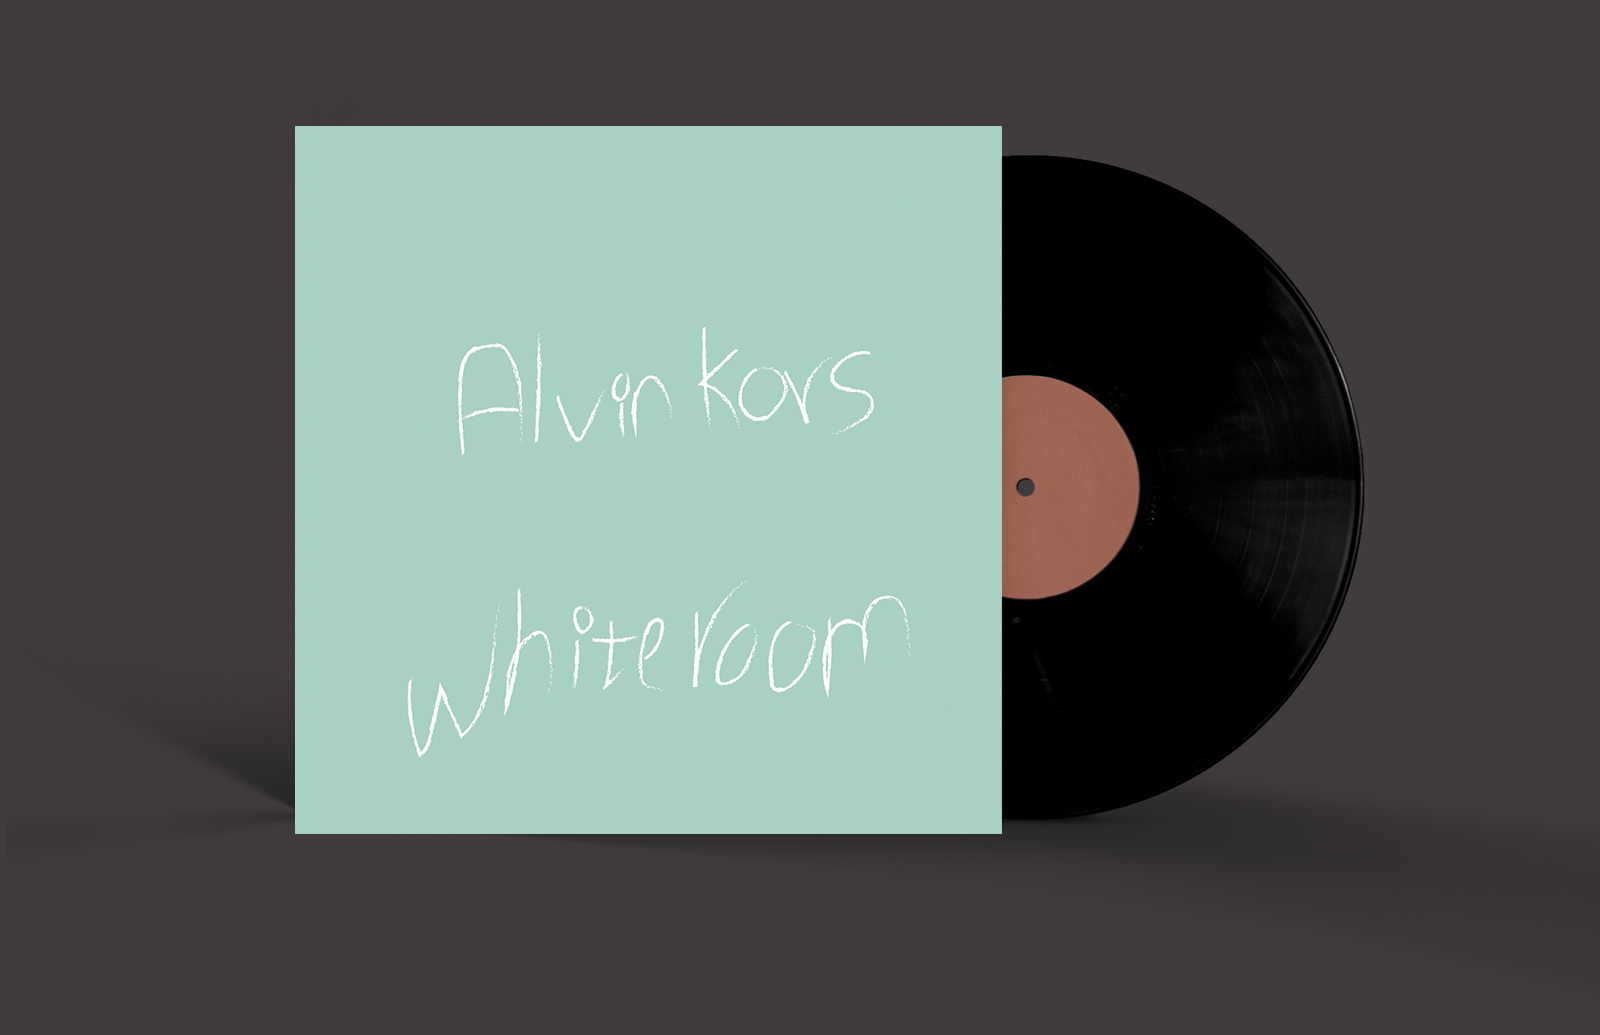 Alvin Kors
White room